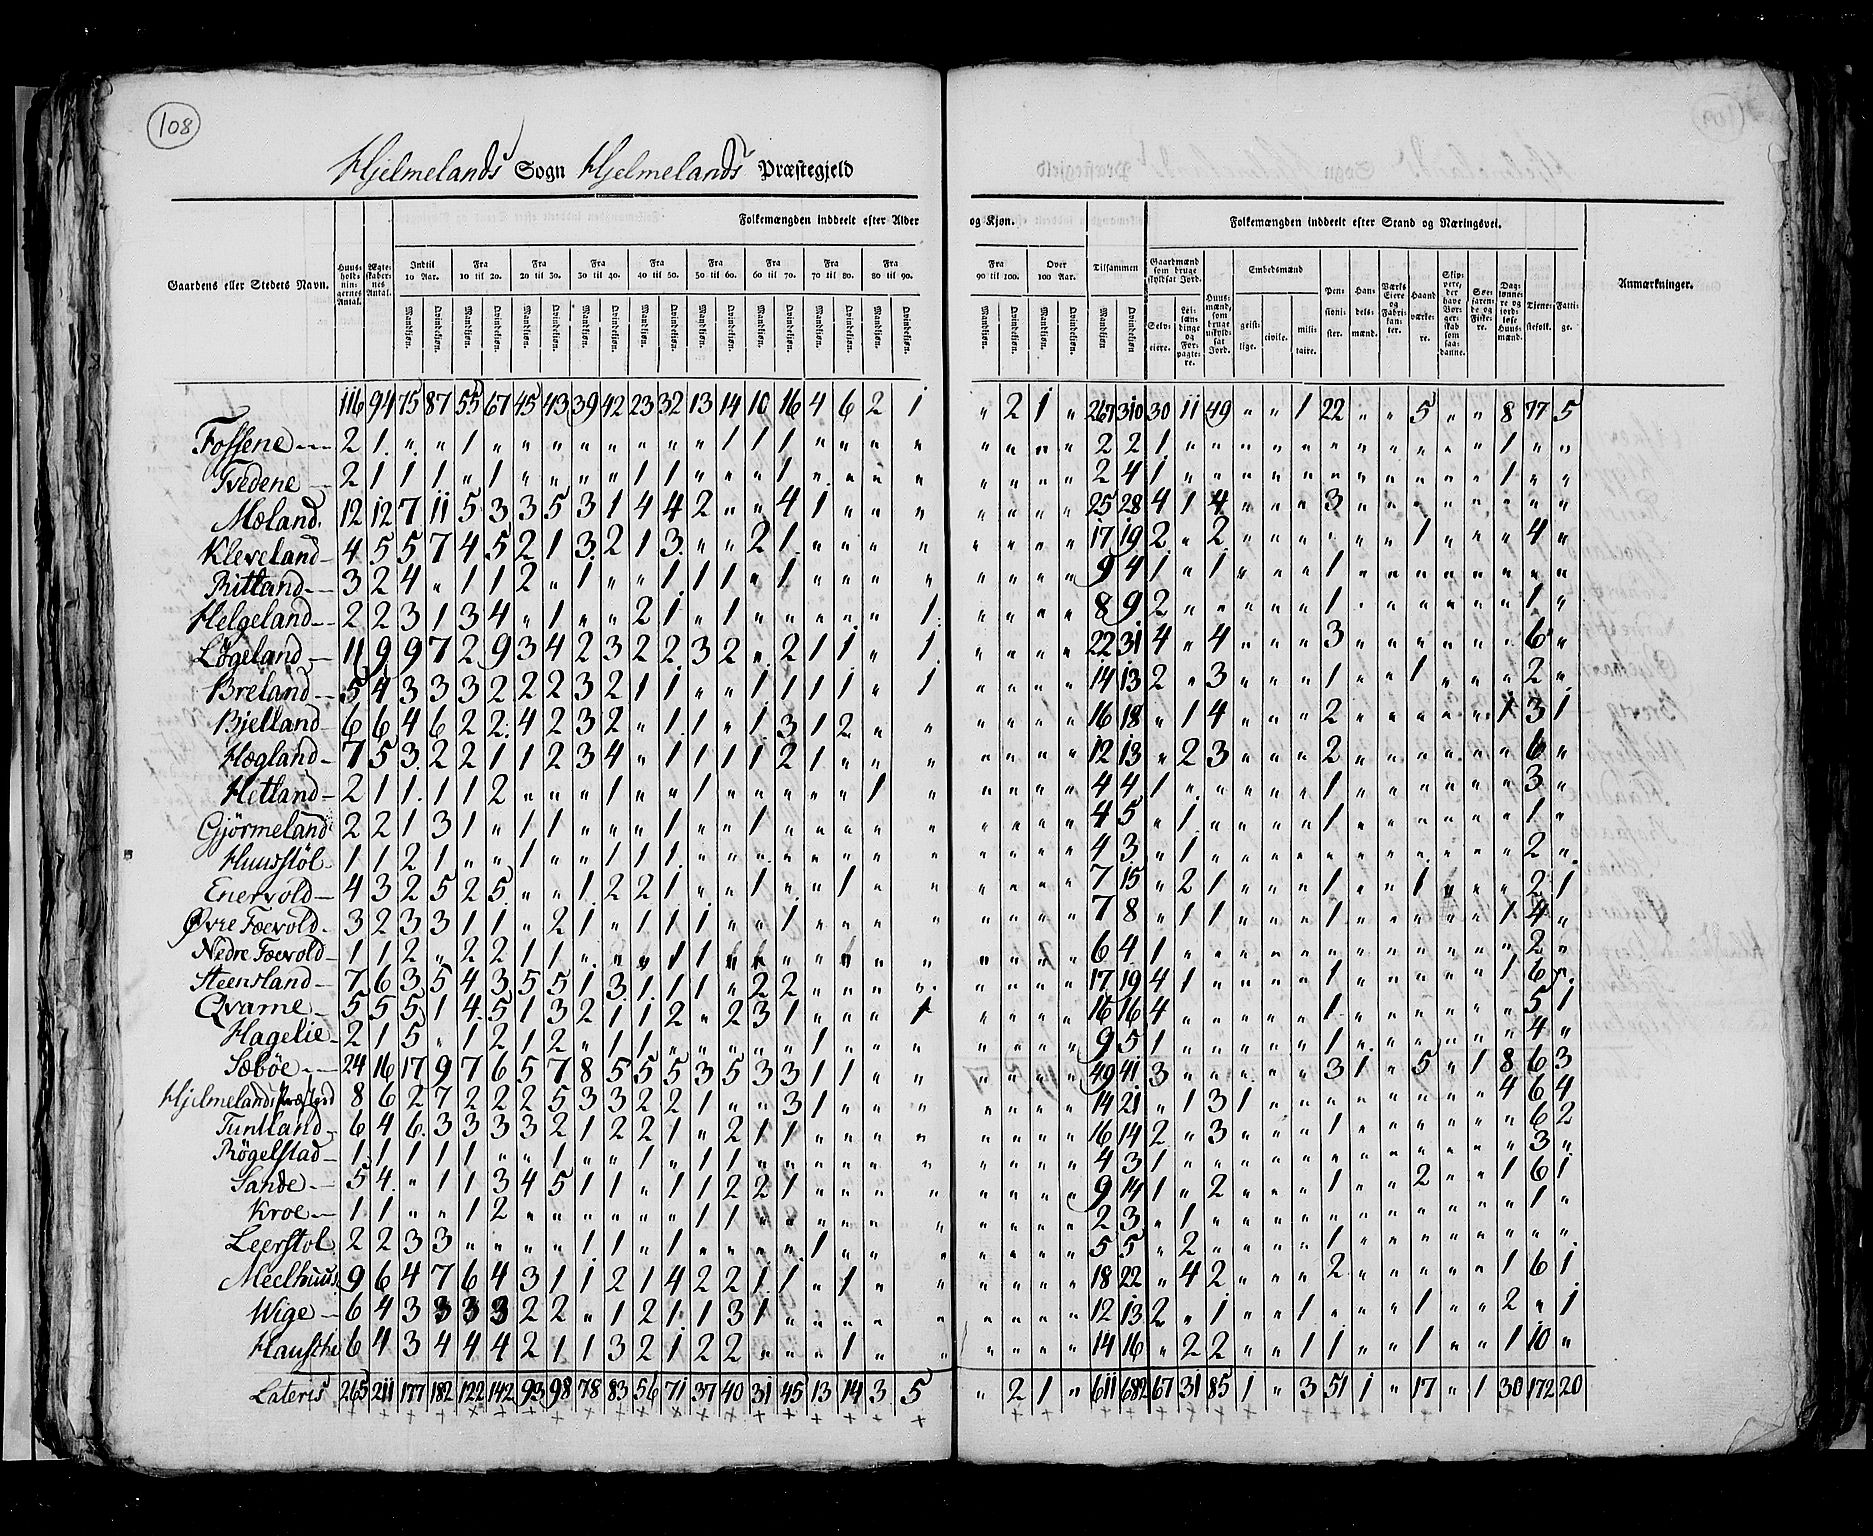 108
Hjelmelands Sogn Hjelmelands Præstegjeld
Gaardens eller Stedets Navn.
Huusholdningernes Antal.
Ægteskabernes Antal.
Folkemængden inddeelt efter Alder og Kjøn.
Indtil 10 Aar. Fra 10 til 20. Fra 20 til 30. Fra 30 til 40. Fra 40 til 50. Fra 50 til 60. Fra 60 til 70. Fra 70 til 80. Fra 80 til 90. Fra 90 til 100. Over 100 Aar. Tilsammen
Mandkjøn. Qvindekjøn.
Folkemængden inddeelt efter Stand og Næringsvei.
Gaardmænd som bruge skyldsat Jord.
Selveiere. Leilændinge og Forpagtere.
Huusmænd, som bruge uskyldsat Jord.
Embedsmænd
geistlige. civile. militaire.
Pensionister. Handelsmænd. Værks Eiere og Fabrikanter. Haandværkere. Skippere, der have Borgerskab som saadanne. Søefarende og Fiskere. Daglønnere og jordløse Huusmænd. Tienestefolk. Fattige.
Anmærkninger.
116 94 75 87 55 67 45 43 39 42 23 32 13 14 10 16 4 6 2 1 " 2 1 " 267 310 30 11 49 " " 1 22 " " 5 " " 8 77 5
Fossene 2 1 " " 1 " " " " " " " " 1 1 1 " " " " " " " " 2 2 1 " " " " " " " " " " " 1 " "
Tvedene 2 1 1 1 " 1 " " " " 1 1 " " " 1 " " " " " " " " 2 4 1 " " " " " " " " " " " 1 " "
Mæland 12 12 7 11 5 3 3 5 3 1 4 4 2 " " 4 1 " " " " " " " 25 28 4 1 4 " " " 3 " " " " " " " "
Kleveland 4 5 5 7 4 5 2 1 3 2 1 3 " " 2 1 " " " " " " " " 17 19 2 " 2 " " " " " " 1 " " " 4 "
Rittland 3 2 4 " 1 1 2 " 1 " " 1 1 1 " 1 " " " " " " " " 9 4 1 " 1 " " " 1 " " " " " " " "
Helgeland 2 2 3 1 3 4 " 1 " " 2 1 " 1 " " " " " 1 " " " " 8 9 2 " " " " " 1 " " " " " " 1 "
Løgeland 11 9 9 7 2 9 3 4 2 3 2 2 3 2 " 2 1 1 " 1 " " " " 22 31 4 " 4 " " " 3 " " " " " " 6 "
Breland 5 4 3 3 3 2 2 2 3 2 1 1 " " 1 1 1 1 " 1 " " " " 14 13 2 " 3 " " " 1 " " 1 " " " 2 "
Bjelland 6 6 4 6 2 2 4 2 3 2 " 1 1 " 1 3 1 2 " " " " " " 16 18 " 1 4 " " " 2 " " " " " 1 3 1
Hægland 7 5 3 2 2 1 1 2 3 4 " 1 1 1 1 2 1 " " " " " " " 12 13 " 2 3 " " " 2 " " " " " " 6 "
Hetland 2 1 1 1 1 2 " " " 1 " " 1 " " " " " 1 " " " " " 4 4 1 " " " " " 1 " " " " " " 3 "
Gjørmeland 2 2 1 3 1 " 1 1 " " " 1 " " 1 " " " " " " " " " 4 5 " 1 " " " " 1 " " " " " " 1 "
Huusstøl 1 1 2 1 " " 1 " " 1 1 1 " " " " " " " " " " " " 4 3 " 1 " " " " " " " " " " " 2 "
Enervold 4 3 2 5 2 5 " " 1 2 2 1 " " 1 " " 1 " " " " " " 7 15 " 2 1 " " " 1 " " 1 " " " 2 1
Øvre Foevold 3 2 3 3 1 1 " 2 1 " 1 1 1 " " 1 " " " " " " " " 7 8 " 1 1 " " " 1 " " " " " 1 4 "
Nedre Foevold 1 1 2 " 2 2 1 1 " " " 1 1 " " " " " " " " " " " 6 4 1 " " " " " " " " " " " " 2 "
Steensland 7 6 3 5 4 3 5 5 1 3 1 1 1 " 2 2 " " " " " " " " 17 19 4 1 " " " " 1 " " " " " 1 6 "
Qvame 5 5 5 1 4 5 1 3 2 1 1 2 " 2 3 1 " " " 1 " " " " 16 16 4 " " " " " 1 " " " " " " 5 1
Hagelie 2 1 5 " 1 2 1 2 " 1 1 " " " " " 1 " " " " " " " 9 5 1 " " " " " 1 " " " " " " 4 "
Sæbøe 24 16 17 9 7 6 5 7 8 5 5 5 3 5 3 3 1 1 " " " " " " 49 41 3 " " " " " 3 1 " 5 " 1 8 6 3
Hjelmelands Præstgrd 8 6 2 7 2 2 2 5 3 3 2 2 1 " " 3 1 " " " " " " " 14 21 " 1 3 1 " " " " " " " " 4 6 4
Tuntland 6 4 6 3 3 3 3 2 1 2 2 1 " 2 1 1 " " " " " " " " 16 14 2 " 3 " " " 1 " " " " " " 6 2
Røgelstad 1 1 1 1 1 " " 1 " " 1 " 1 1 " " " " " " " " " " 4 3 1 " " " " " " " " " " " " 3 "
Sande 5 4 " 1 1 3 4 5 1 1 " 1 1 2 2 1 " " " " " " " " 9 14 1 " 2 " " " 1 " " 2 " " 1 6 1
Kroe 1 1 " " 1 2 " " " " " " 1 1 " " " " " " " " " " 2 3 " 1 " " " " " " " " " " " 1 "
Leerstol 2 2 3 3 " " " " 1 1 " 1 " " " " 1 " " " " " " " 5 5 " 2 " " " " 1 " " " " " " " "
Meelhuus 9 6 4 7 6 4 3 1 1 2 1 4 2 2 1 1 " 1 " " " " " " 18 22 " 4 2 " " " 2 " " " " " 1 6 1
Wige 6 4 3 3 3 3 2 2 " 1 2 1 1 3 1 " " " " " " " " " 12 13 2 " 1 " " 1 " " " 1 " " 2 " 1
6 4 3 4 4 4 2 1 1 3 2 1 2 2 " " " 1 " " " " " " 14 16 " 2 2 " " 1 1 " " 1 " " 1 10 "
Lateris 265 211 177 182 122 142 93 98 78 83 56 71 37 40 31 45 13 14 3 5 " 2 1 " 611 682 67 31 85 1 " 3 51 1 " 17 " 1 30 172 20